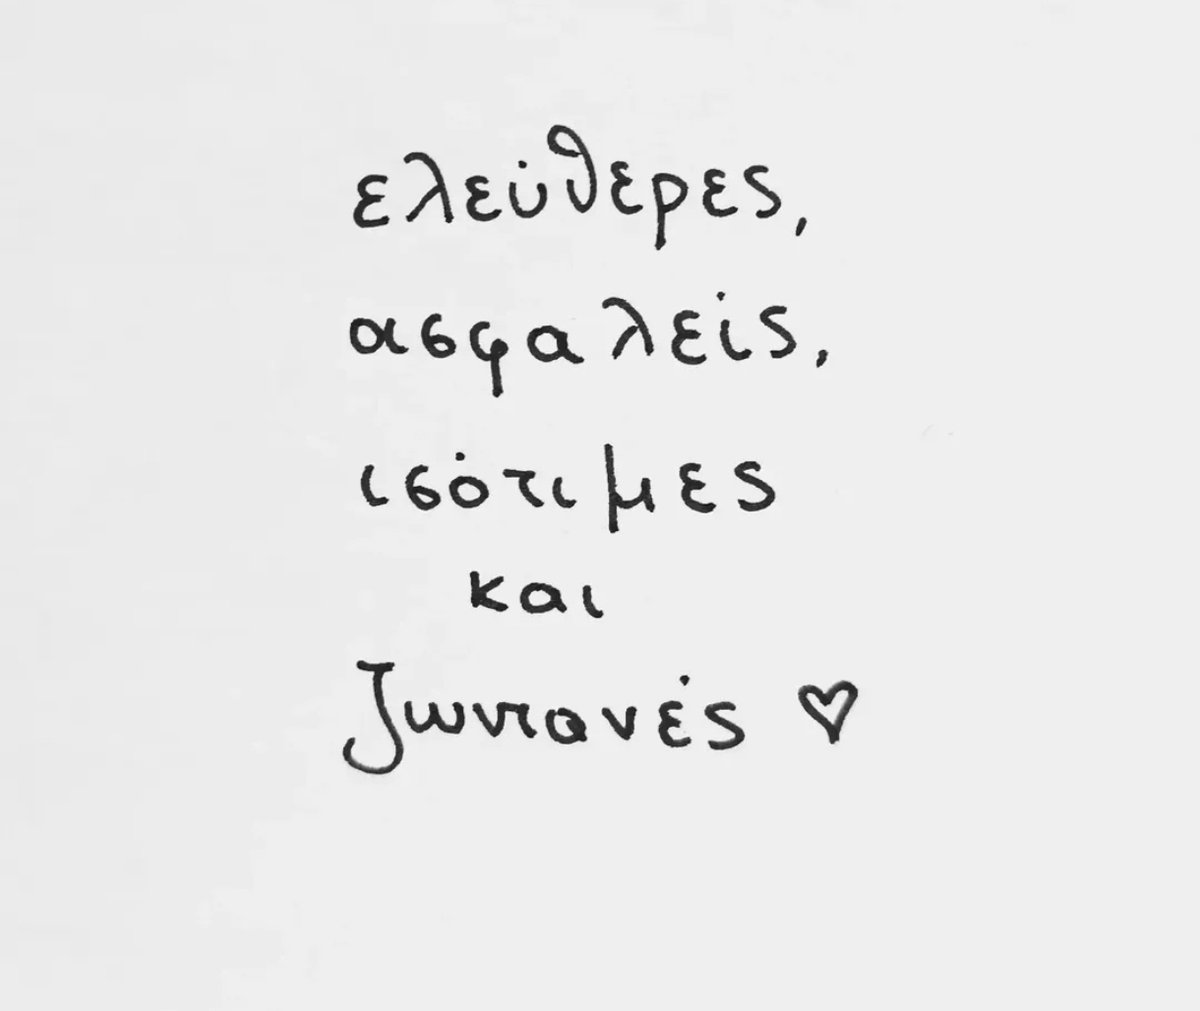 ελεύθερες,
ασφαλείς,
ισότιμες
και
ζωντανές ♡